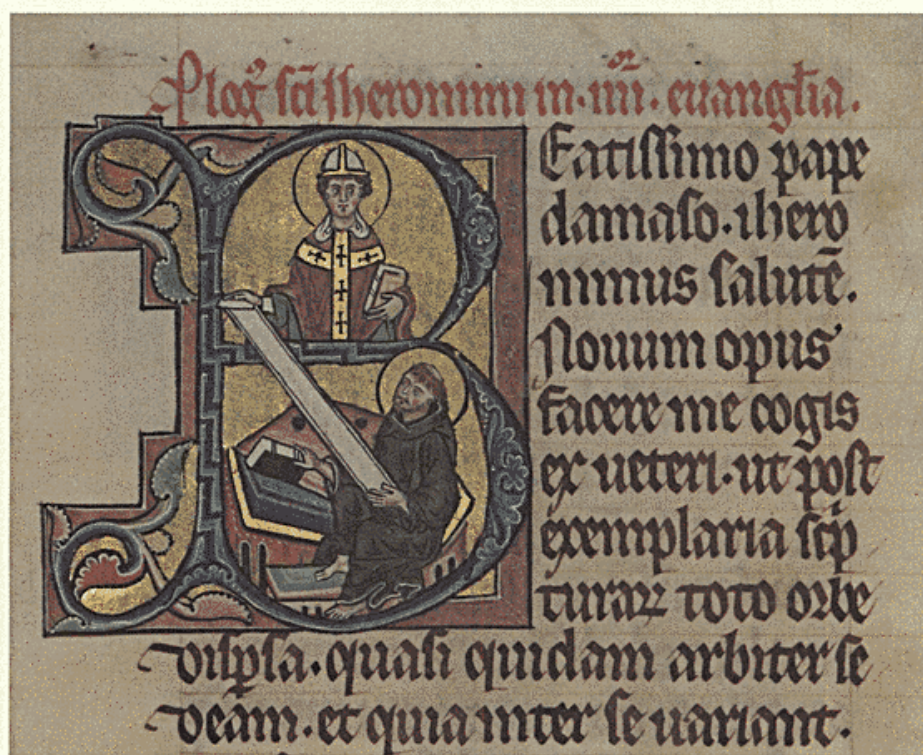 Plog sci iheronimi in .iiii. euanglia.
Beatissimo pape
damaso. ihero
nimus salutē.
Nouum opus
facere me cogis
ex ueteri. ut post
exemplaria scp
turaꝝ toto orbe
disp̱sa. quasi quidam arbiter se
deam. et quia inter se uariant.